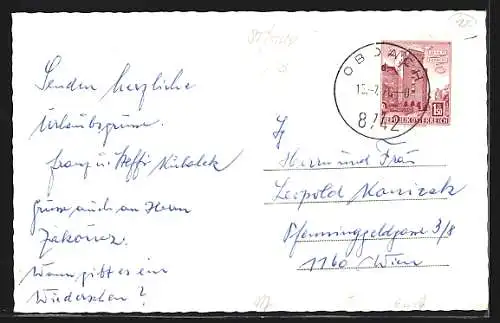 Senden herzliche
Urlaubsgrüsse.
Franz u. Steffi Kubalek
Grüsse auch an Herrn
Wann gibt es ein
Wiedersehen?
OBDACH
8742
REPUBLIK ÖSTERREICH
Herrn und Frau
Leopold
Pfenninggeldgasse 3/8
1160 Wien